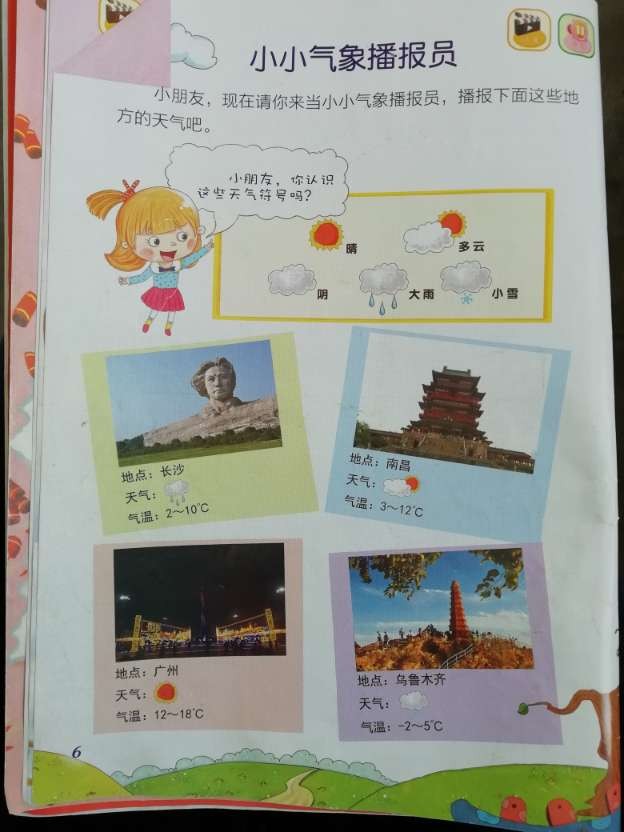 小小气象播报员
小朋友，现在请你来当小小气象播报员，播报下面这些地
方的天气吧。
小朋友，你认识
这些天气符号吗？
晴
多云
阴
大雨
小雪
地点：长沙
天气：
气温：2～10℃
地点：南昌
天气：
气温：3～12℃
地点：广州
天气：
气温：12～18℃
地点：乌鲁木齐
天气：
气温：-2～5℃
6